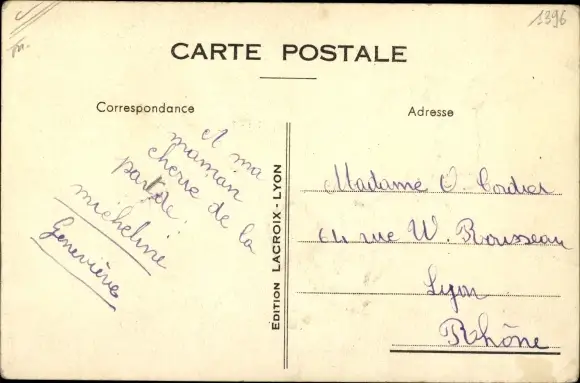 1396
CARTE POSTALE
Correspondance
Adresse
A ma
maman
cherie de la
part de
micheline
Geneviève
EDITION LACROIX - LYON
Madame O. Cordier
64 rue W. Rousseau
Lyon
Rhône